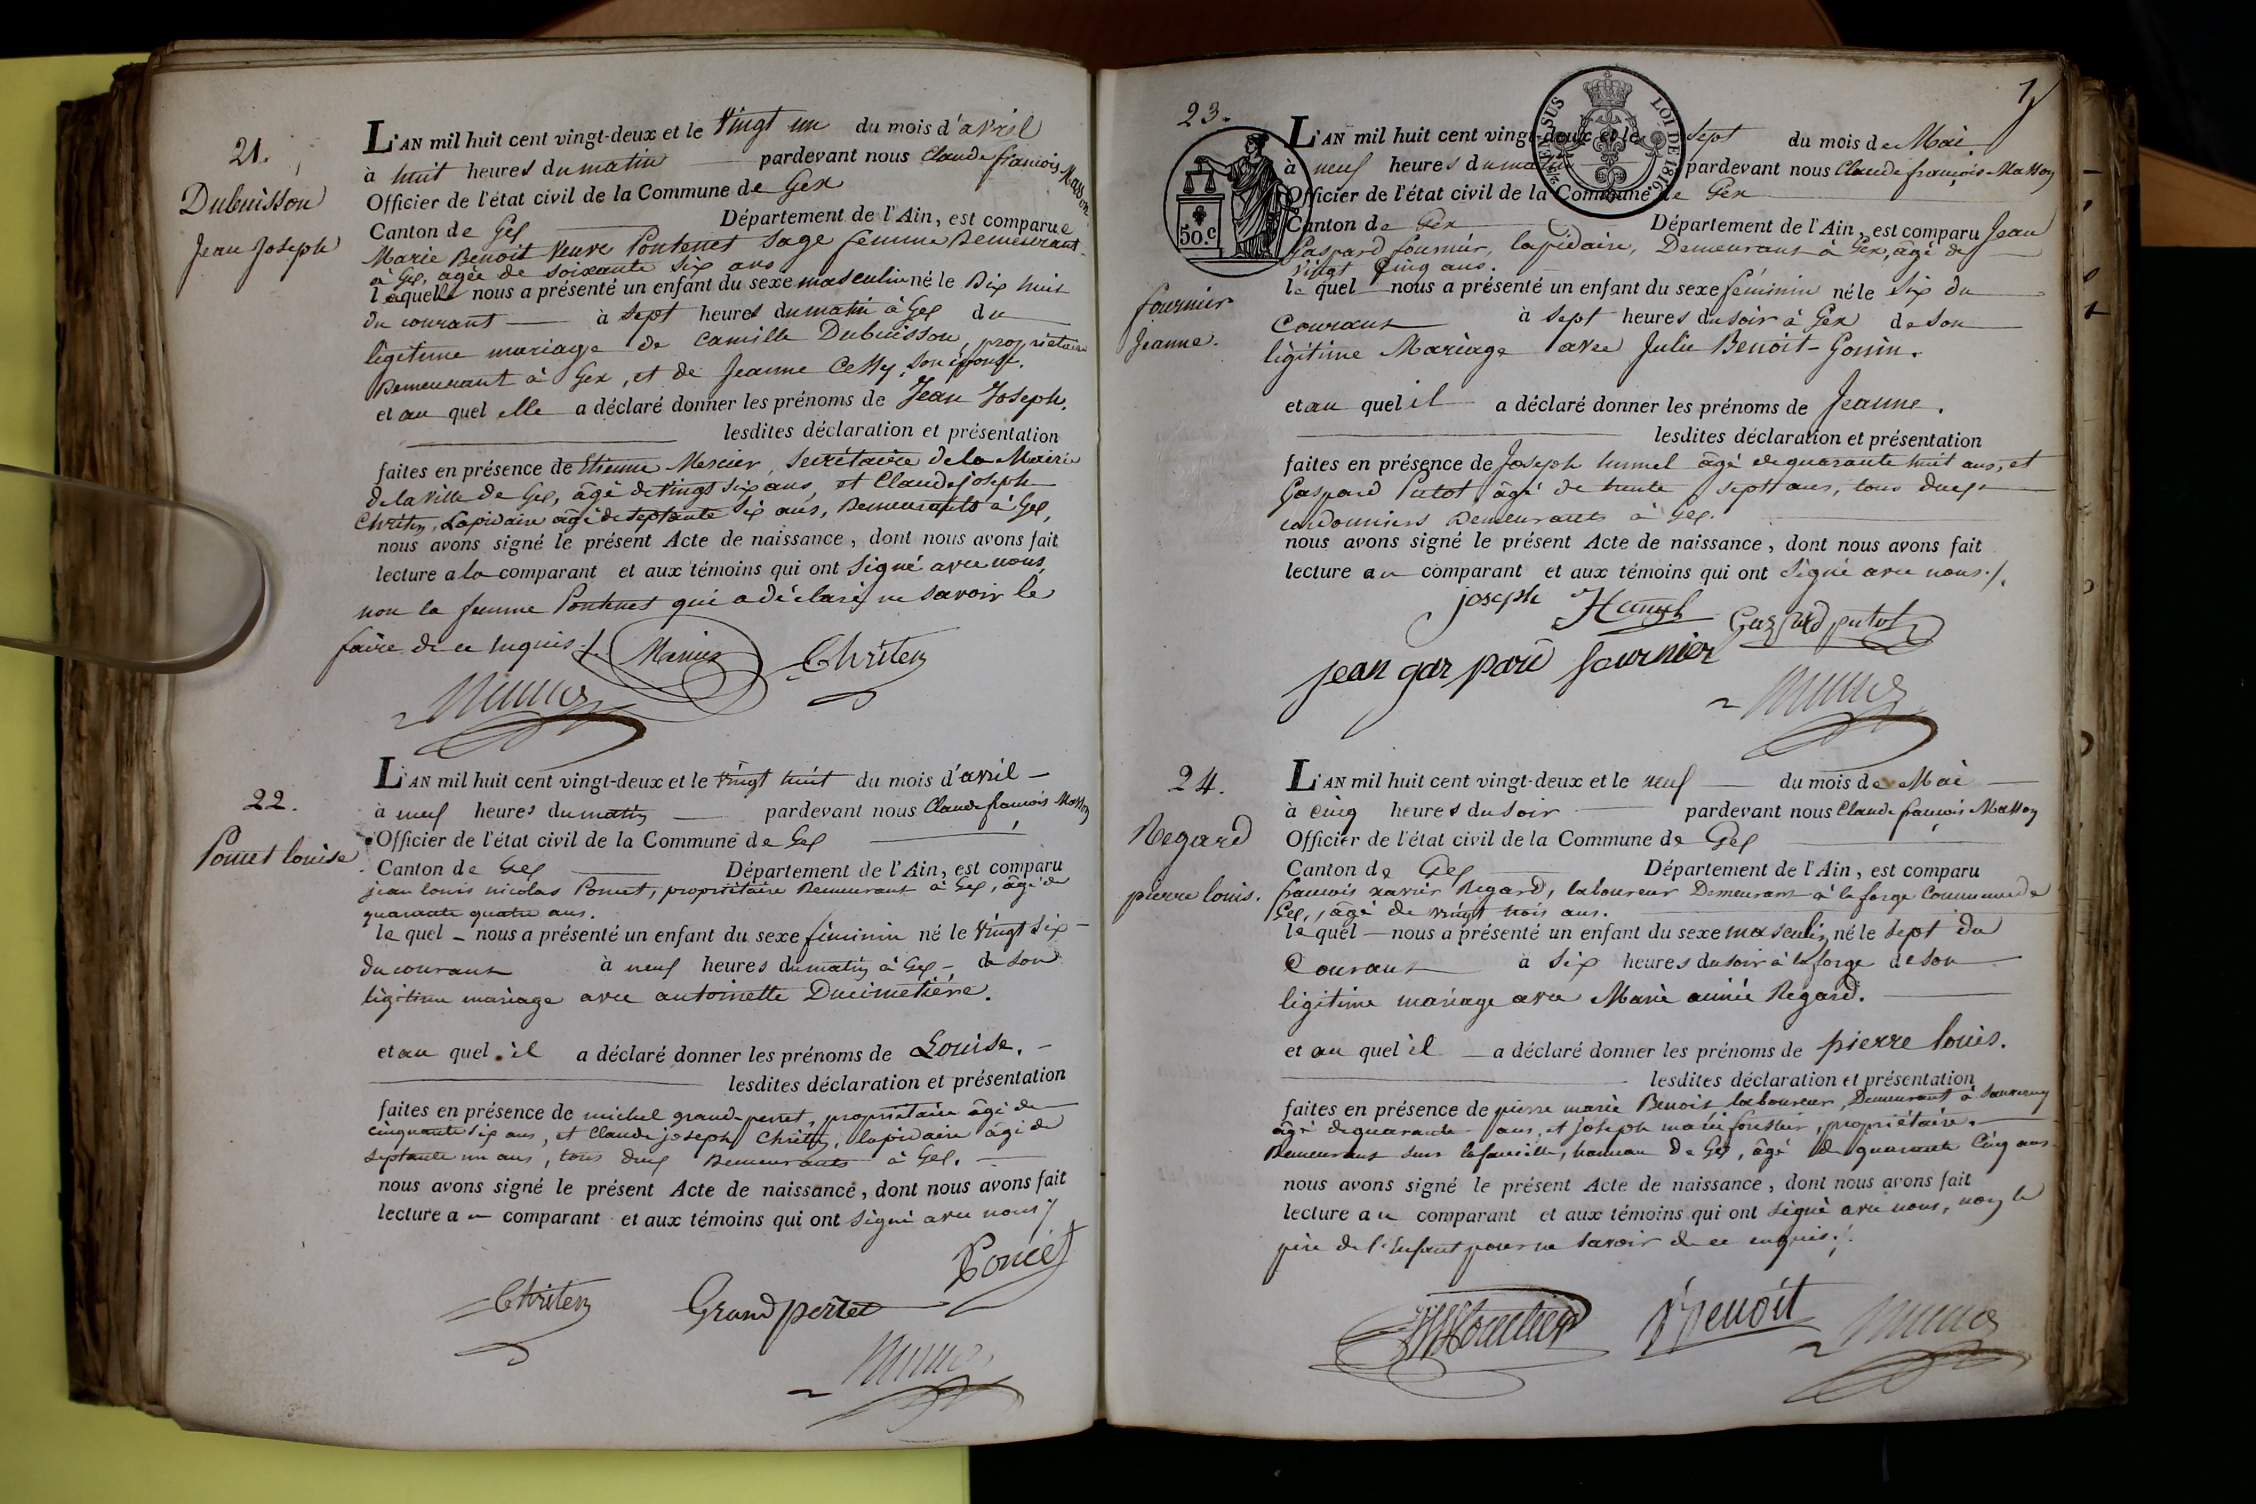 21.
Dubuisson
Jean Joseph
L'AN mil huit cent vingt-deux et le vingt un du mois d'avril
à huit heures du matin pardevant nous Claude françois Masson
Officier de l'état civil de la Commune de Gex
Canton de Gex Département de l'Ain, est comparue
Marie Benoit veuve Pontenet sage femme Demeurant
à Gex, agée de soixante six ans
laquelle nous a présenté un enfant du sexe masculin né le Dix huit
du courant à sept heures du matin à Gex du
légitime mariage de camille Dubuisson, propriétaire
Demeurant à Gex, et de Jeanne Cessy, son épouse.
et au quel elle a déclaré donner les prénoms de Jean Joseph.
lesdites déclaration et présentation
faites en présence de Etienne Mercier, secrétaire de la Mairie
de la ville de Gex, âgé de vingt six ans, et Claude joseph
Chriten, Lapidaire âgé de septante six ans, Demeurants à Gex,
nous avons signé le présent Acte de naissance, dont nous avons fait
lecture a la comparant et aux témoins qui ont signé avec nous,
non la femme Pontenet qui a déclaré ne savoir le
faire de ce enquis ./.
Chriten
22.
Poncet louise
L'AN mil huit cent vingt-deux et le vingt huit du mois d'avril
à neuf heures du matin pardevant nous Claude françois Masson
Officier de l'état civil de la Commune de Gex
Canton de Gex Département de l'Ain, est comparu
jean louis nicolas Poncet, propriétaire Demeurant à Gex, âgé de
quarante quatre ans.
le quel nous a présenté un enfant du sexe féminin né le vingt six
du courant à neuf heures du matin à Gex, de son
légitime mariage avec antoinette Ducimetière.
et au quel il a déclaré donner les prénoms de Louise.
lesdites déclaration et présentation
faites en présence de michel grand perret, propriétaire âgé de
cinquante six ans, et Claude joseph Chriten, lapidaire âgé de
septante un ans, tous deux Demeurants à Gex.
nous avons signé le présent Acte de naissance, dont nous avons fait
lecture au comparant et aux témoins qui ont signé avec nous /
Poncet
Chriten Grand perret
1
23.
50.c
EN SUS LOI DE 1816.
fournier
Jeanne.
L'AN mil huit cent vingt-deux et le sept du mois de Mai
à neuf heures du matin pardevant nous Claude françois Masson
Officier de l'état civil de la Commune de Gex
Canton de Gex Département de l'Ain, est comparu Jean
Gaspard fournier, lapidaire, Demeurant à Gex, âgé de
vingt cinq ans.
le quel nous a présenté un enfant du sexe féminin né le six du
courant à sept heures du soir à Gex de son
légitime Mariage avec Julie Benoit-Gonin.
et au quel il a déclaré donner les prénoms de Jeanne.
lesdites déclaration et présentation
faites en présence de Joseph âgé de quarante huit ans, et
Gaspard Putot âgé de trente sept ans, tous deux
cordonniers Demeurants à Gex.
nous avons signé le présent Acte de naissance, dont nous avons fait
lecture au comparant et aux témoins qui ont signé avec nous ./.
joseph Gaspard putot
jean gaspard fournier
24.
Regard
pierre louis.
L'AN mil huit cent vingt-deux et le neuf du mois de Mai
à cinq heures du soir pardevant nous Claude françois Masson
Officier de l'état civil de la Commune de Gex
Canton de Gex Département de l'Ain, est comparu
françois xavier Regard, laboureur Demeurant à la forge Commune de
Gex, âgé de vingt trois ans.
le quel nous a présenté un enfant du sexe masculin né le sept du
Courant à six heures du soir à la forge de son
légitime mariage avec Marie aimée Regard.
et au quel il a déclaré donner les prénoms de pierre louis.
lesdites déclaration et présentation
faites en présence de pierre marie Benoit laboureur, Demeurant à Sauverny
âgé de quarante ans, et joseph marie propriétaire.
Demeurant sur la faucille, hameau de Gex, âgé de quarante cinq ans
nous avons signé le présent Acte de naissance, dont nous avons fait
lecture au comparant et aux témoins qui ont signé avec nous, non le
père de l'enfant pour ne savoir de ce enquis ./.
Benoit